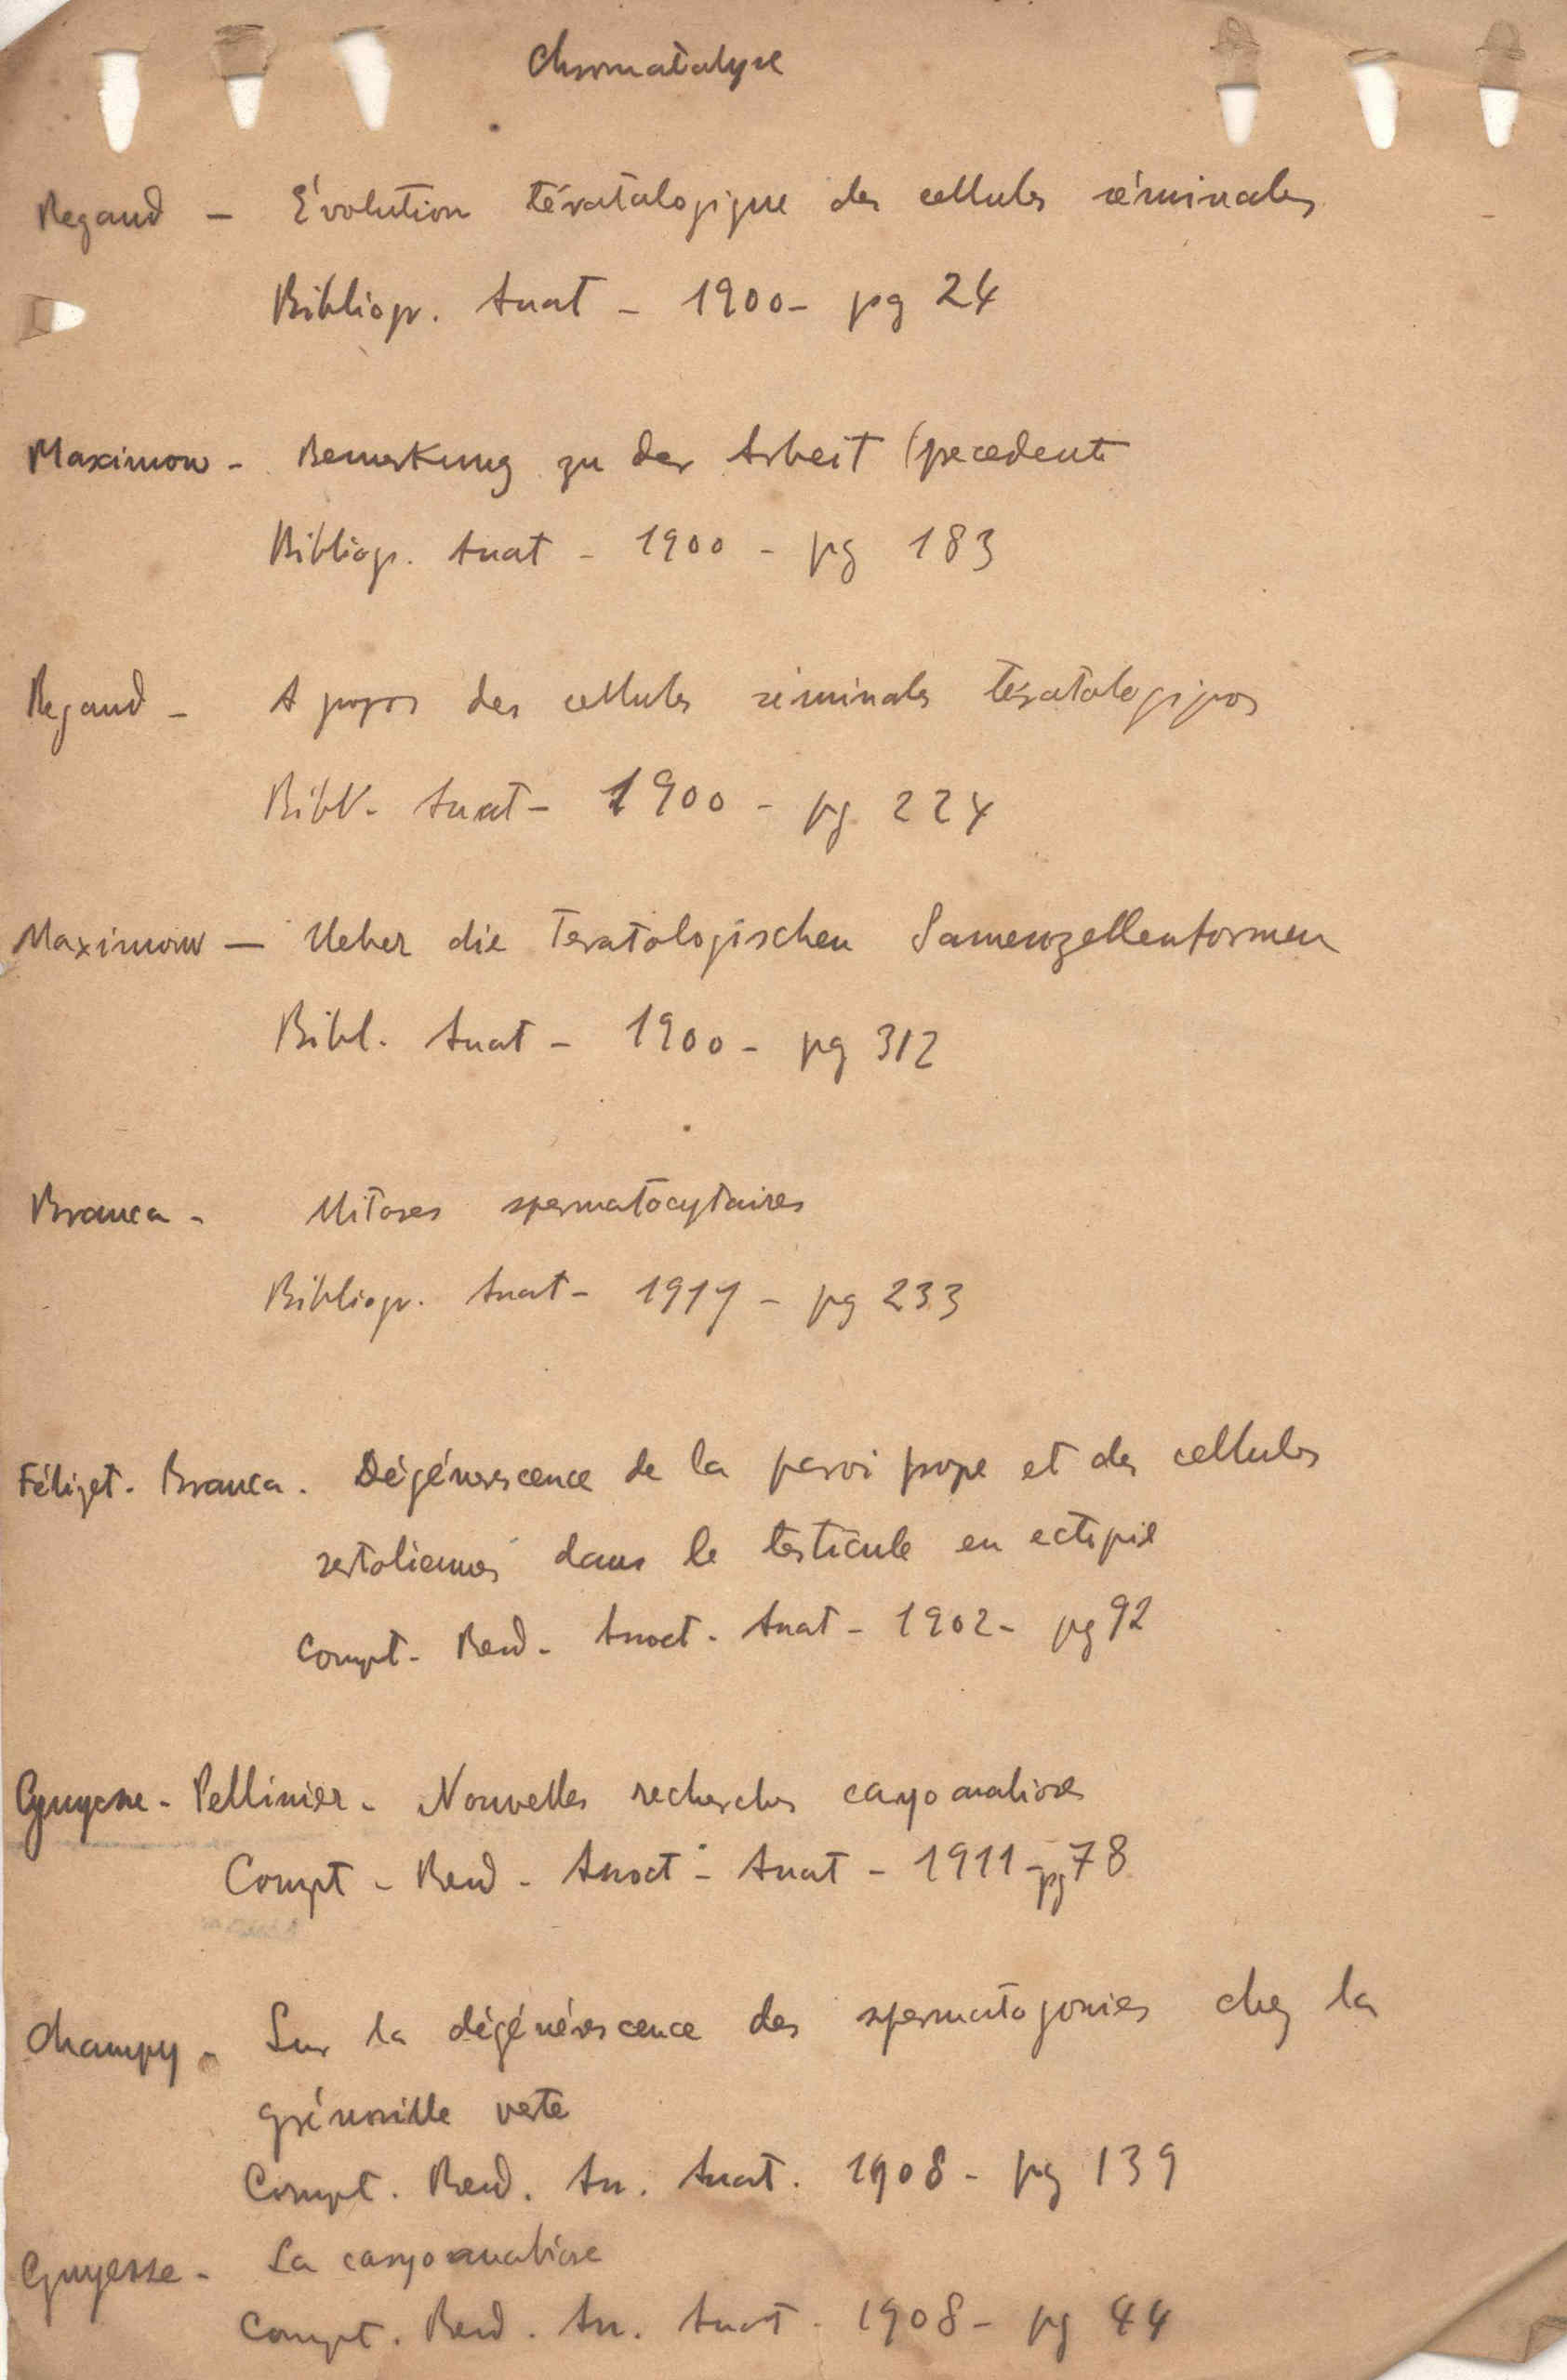 Chromatolyse
Regaud — Évolution tératologique des cellules séminales
Bibliogr. Anat - 1900 - pg 24
Maximow - Bemerkung zu der Arbeit (precedente
Bibliogr. Anat - 1900 - pg 183
Regaud - A propos des cellules séminales tératologiques
Bibl. Anat - 1900 - pg 224
Maximow — Ueber die Teratologischen Samenzellenformen
Bibl. Anat - 1900 - pg 312
Branca - Mitoses spermatocytaires
Bibliogr. Anat - pg 233
Félizet - Branca - Dégénérescence de la paroi propre et des cellules
sertoliennes dans le testicule en ectopie
Compt - Rend - Assoct - Anat - 1902 - pg 92
Guyesse - Pellinier - Nouvelles recherches caryoanabiose
Compt - Rend - Assoct - Anat - 1911 - pg 78
Champy - Sur la dégénérescence des spermatogonies chez la
grénouille verte
Compt. Rend. As. Anat. 1908 - pg 139
Guyesse - La caryoanabiose
Compt. Rend. As. Anat - 1908 - pg 44